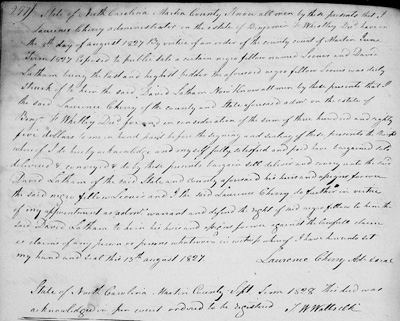 State of North Carolina Martin County Know all men by these presents that I
Laurence Cherry administrator on the estate of Benjamin Whitley Decd have on
the 9th day of August 1827 By virtue of an order of the county court of Martin June
Term 1827 Exposed to public sale a certain negro fellow named and David
Latham being the last and highest bidder the aforesaid negro fellow was duly
struck off to him the said David Latham Now Know all men by these presents that I
the said Laurence Cherry of the county and State aforesaid admr on the estate of
Benjn Whitley Decd for and in consideration of the sum of three hundred and eighty
five dollars to me in hand paid before the signing and sealing of these presents the
whereof I do hereby acknowledge and myself fully satisfied and paid have bargained sold
delivered & conveyed & do by these presents bargain sell deliver and convey unto the said
David Latham of the said State and County aforesaid his heirs and assigns forever
the said negro fellow and I the said Laurence Cherry do further in virtue
of my appointment as admr warrant and defend the right of said negro fellow to him the
said David Latham to he his heirs and assigns forever against the lawfull claim
or claims of any person or persons whatever in witness whereof I have hereunto set
my hand and seal this 13th august 1827.
Laurence Cherry Adr Seal
State of North Carolina Martin County Sept Term 1828 This deed was
acknowledged in open court ordered to be registered